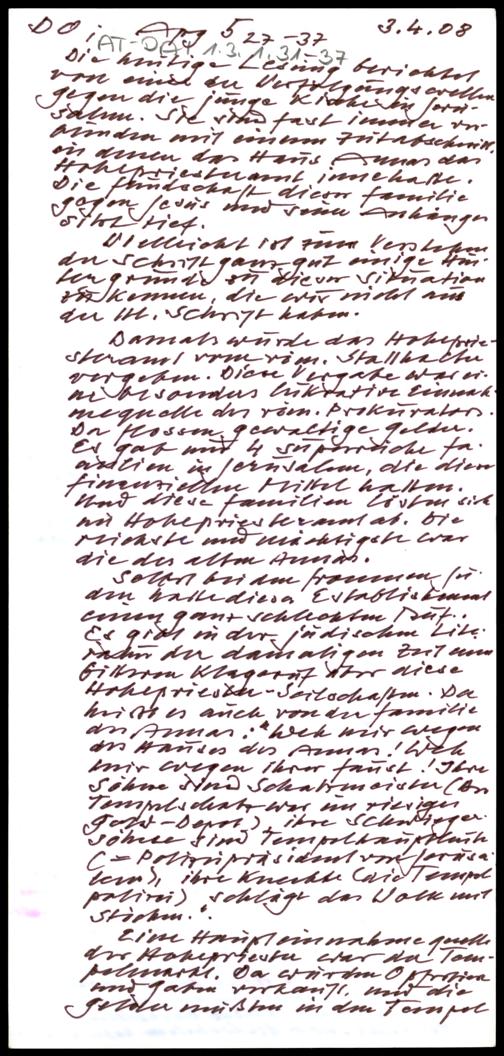 DO i Apg 5 27-37 3.4.08
AT-DAT. 1.3. 1.31-37
Die heutige Lesung berichtet
von einer der Verfolgungswellen
gegen die junge Kirche in Jeru-
salem. Sie sind fast immer ver-
bunden mit einem Zeitabschnitt,
in denen das Haus Annas das
Hohepriesteramt innehatte.
Die Feindschaft dieser Familie
gegen Jesus und seine Anhänger
sitzt tief.
Vielleicht ist zum Verstehen
der Schrift ganz gut einige Hin-
tergründe zu dieser Situation
zu kennen, die wir nicht aus
der Hl. Schrift haben.
Damals wurde das Hoheprie-
steramt vom röm. Statthalter
vergeben. Diese Vergabe war ei-
ne besonders lukrative Einnah-
mequelle des röm. Prokurators.
Da flossen gewaltige Gelder.
Es gab nur 4 superreiche Fa-
milien in Jerusalem, die diese
finanziellen Mittel hatten.
Und diese Familien lösten sich
im Hohepriesteramt ab. Die
reichste und mächtigste war
die des alten Annas.
Selbst bei den frommen Ju-
den hatte dieses Establishment
einen ganz schlechten Ruf.
Es gibt in der jüdischen Lite-
ratur der damaligen Zeit einen
bitteren Klageruf über diese
Hohepriester-Seilschaften. Da
heißt es auch von der Familie
des Annas: "Weh mir wegen
des Hauses des Annas! Weh
mir wegen ihrer Faust! Ihre
Söhne sind Schatzmeister (der
Tempelschatz war ein riesiges
Geld-Depot), ihre Schwieger-
söhne sind Tempelhauptleute
(= Polizeipräsident von Jerusa-
lem), ihre Knechte (die Tempel
polizei) schlägt das Volk mit
Stöcken."
Eine Haupteinnahmequelle
der Hohepriester war der Tem-
pelmarkt. Da wurden Opfertiere
und Gaben verkauft, und die
Gelder mußten in den Tempel